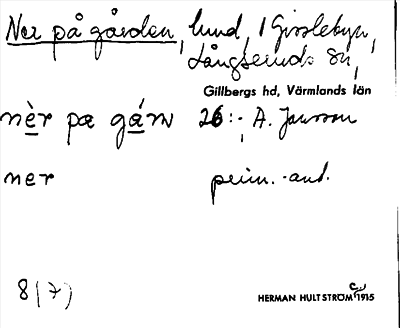 Ner på gården, lund, 1 Gisslebyn,
Långseruds sn,
Gillbergs hd, Värmlands län
nèr pæ gáɽn 26:-, A. Jansson
ner prim.-ant.
8(7)
HERMAN HULTSTRÖM 1915